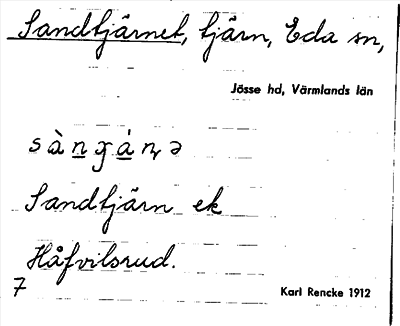 Sandtjärnet, tjärn, Eda sn,
Jösse hd, Värmlands län
Sandtjärn ek
Håfvilsrud.
7
Karl Rencke 1912